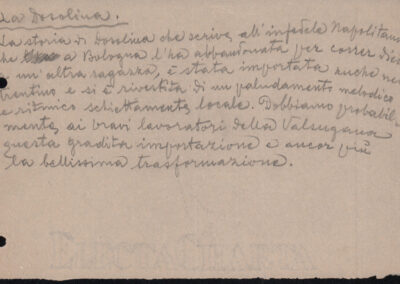 La Dosolina.
La storia di Dosolina che scrive all'infedele Napolitano
che a Bologna l'ha abbandonata per correr dietro
a un'altra ragazza, è stata importata anche nel
Trentino e si è rivestita di un paludamento melodico
e ritmico schiettamente locale. Dobbiamo probabil-
mente ai bravi lavoratori della Valsugana
questa gradita importazione e ancor più
la bellissima trasformazione.